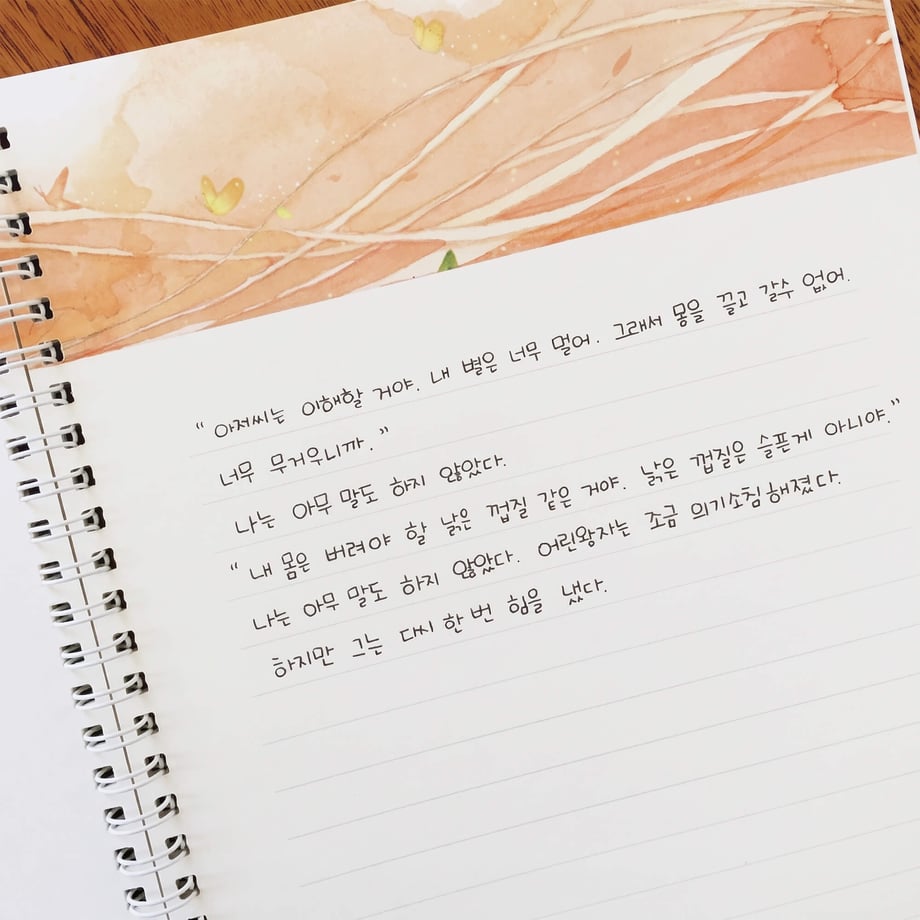 “아저씨는 이해할 거야. 내 별은 너무 멀어. 그래서 몸을 끌고 갈수 없어.
너무 무거우니까.”
나는 아무 말도 하지 않았다.
“내 몸은 버려야 할 낡은 껍질 같은 거야. 낡은 껍질은 슬픈게 아니야.”
나는 아무 말도 하지 않았다. 어린왕자는 조금 의기소침해졌다.
하지만 그는 다시 한 번 힘을 냈다.